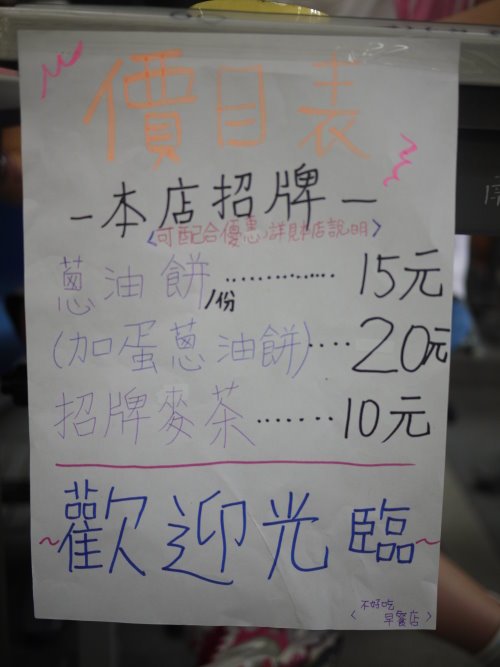 價目表
-本店招牌-
<可配合優惠,詳財店說明>
蔥油餅/份............15元
(加蛋蔥油餅)....20元
招牌麥茶.......10元
~歡迎光臨~
<不好吃
早餐店>